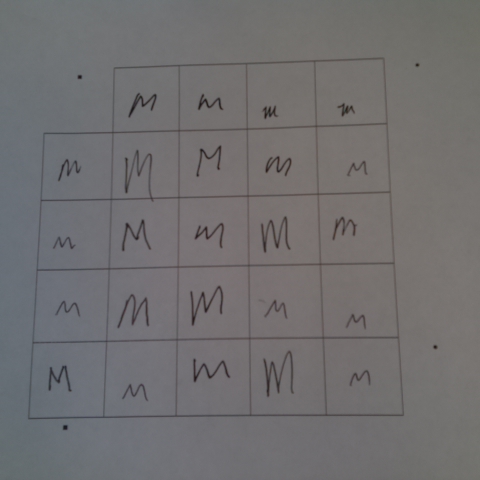 m m m m
m M M m m
m M m M m
m M M m m
M m m M m